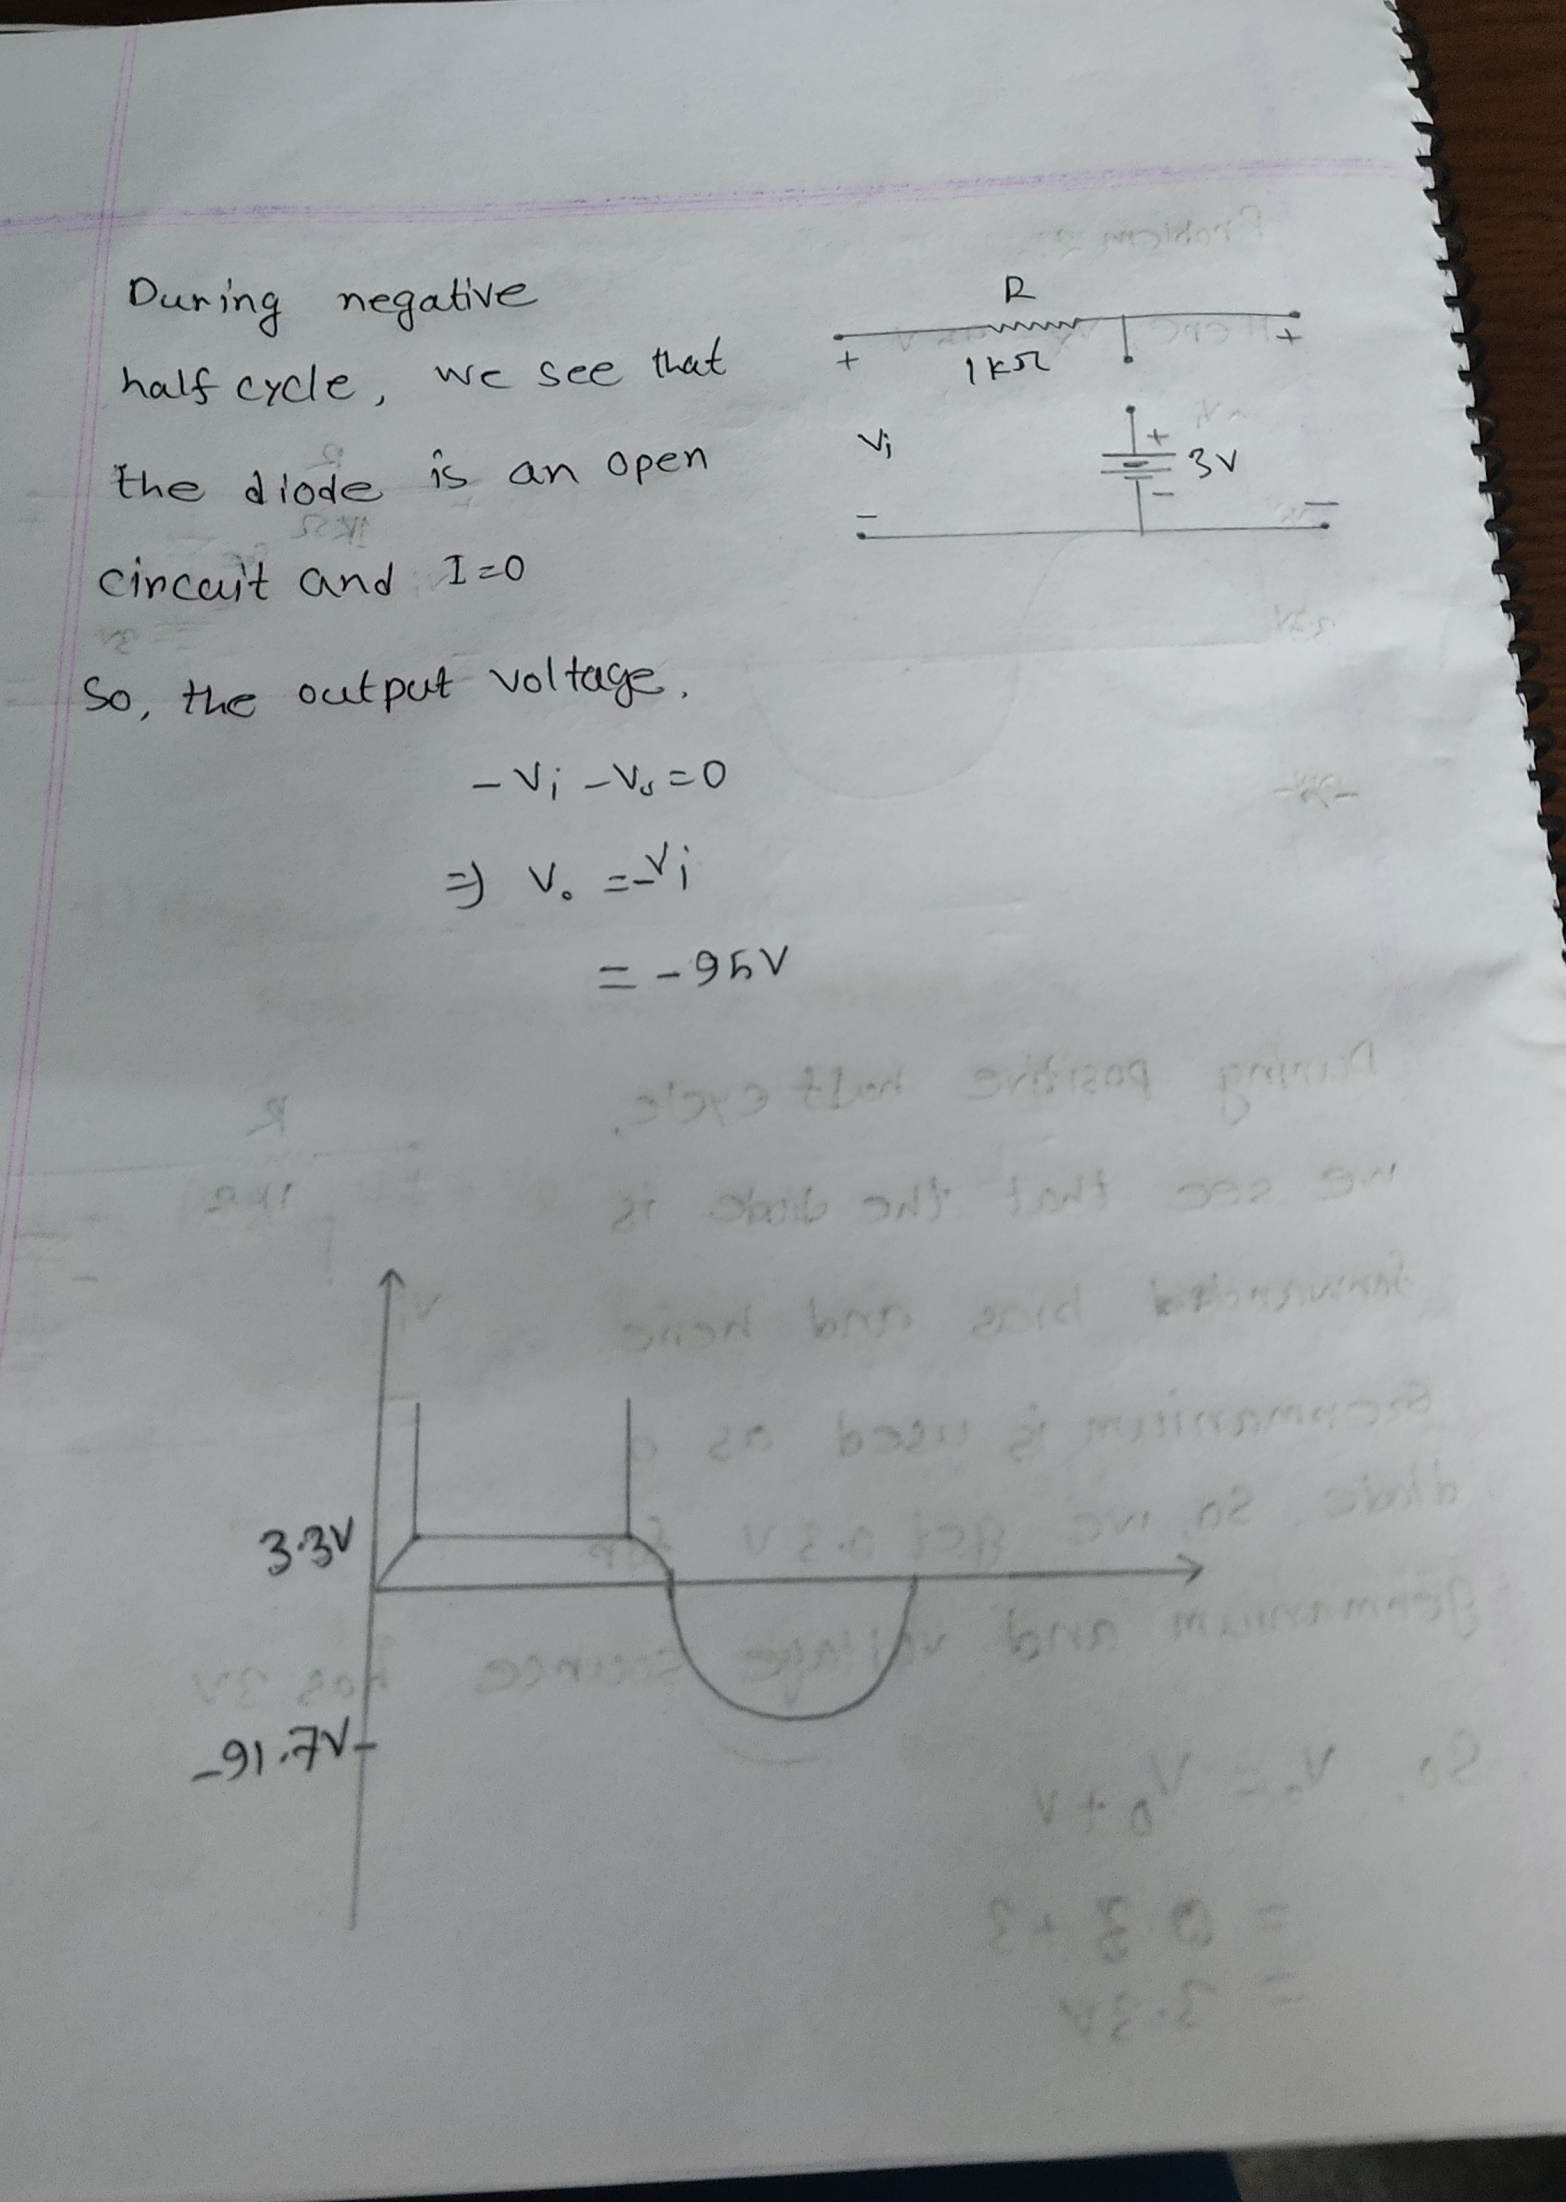 During negative
half cycle, we see that
the diode is an open
circuit and I=0
So, the output voltage,
R
1kΩ
+
+
Vi
+
3V
-
-
-
-Vi -Vo=0
⇒ Vo =-Vi
= -95V
3.3V
-91.7V